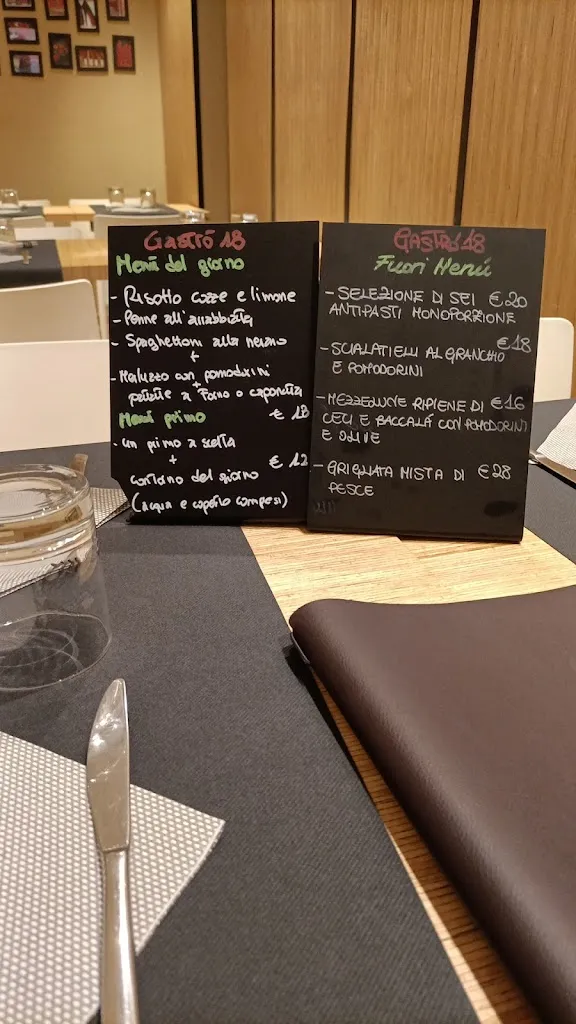 Gastró 18
Menù del giorno
- Risotto cozze e limone
- Penne all'arrabbiata
- Spaghettoni alla nerano
+
- Merluzzo con pomodorini
+
patate a forno o caponata
€ 18
Menù primo
- un primo a scelta
+
contorno del giorno
€ 12
(acqua e coperto compresi)
Gastró 18
Fuori Menù
- SELEZIONE DI SEI € 20
ANTIPASTI MONOPORZIONE
- SCIALATIELLI AL GRANCHIO € 18
E POMODORINI
- MEZZELUNE RIPIENE DI € 16
CECI E BACCALÀ CON POMODORINI
E OLIVE
- GRIGLIATA MISTA DI € 28
PESCE